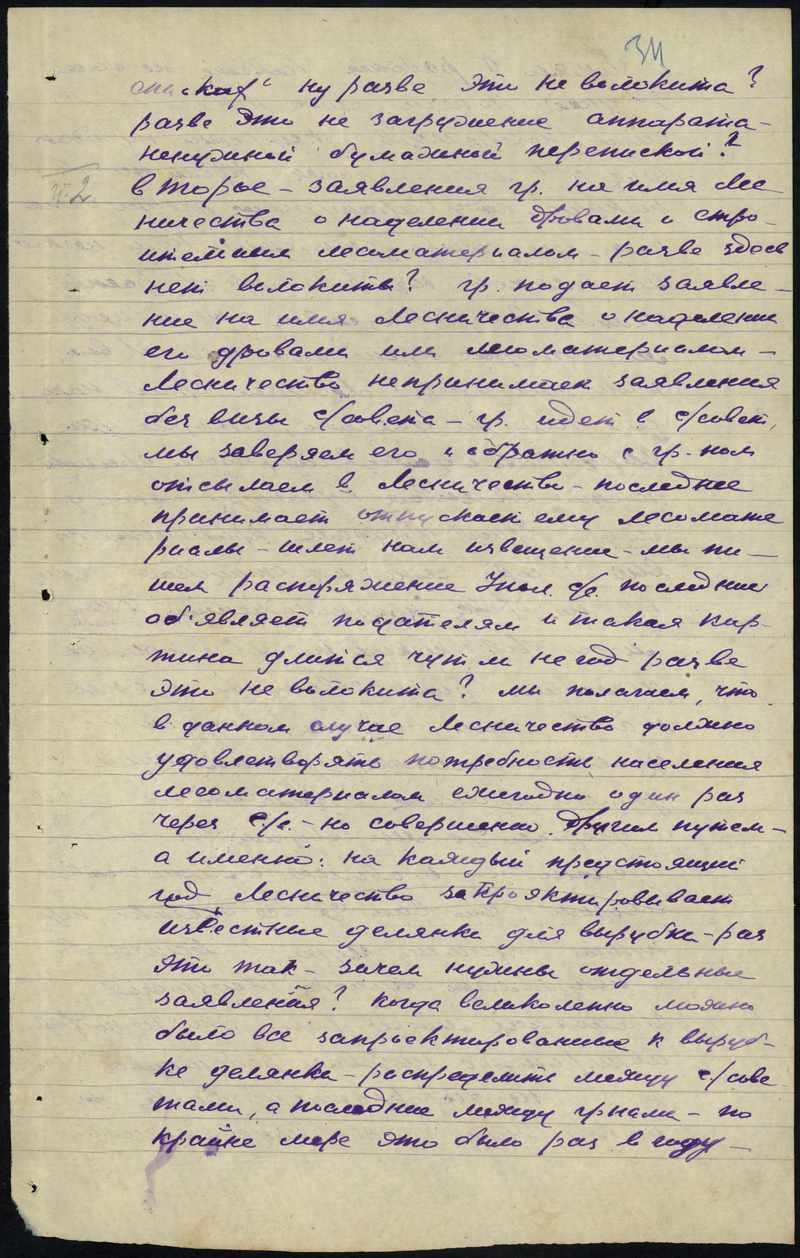 34
ну разве это не волокита?
разве это не загружение аппарата –
ненужной бумажной перепиской?
№ 2
второе – заявления гр. на имя Лес
ничества о наделении дровами и стро-
ительным лесоматериалом – разве здесь
нет волокиты? гр. подает заявле-
ние на имя Лесничества о наделении
его дровами или лесоматериалом –
Лесничество непринимает заявления
без визы с/совета – гр. идет в с/совет,
мы заверяем его и обратно с гр-ном
отсылаем в Лесничество – последнее
принимает отпускает ему лесомате
риалы – шлет нам извещение – мы пи-
шем распоряжение Упол. с/с. последние
об'являет подателям и такая кар-
тина длится чут ли не год разве
это не волокита? мы полагаем, что
в данном случае Лесничество должно
удовлетворять потребности населения
лесоматериалом ежегодно один раз
через с/с. – но совершенно другим путем –
а именно: на каждый предстоящий
год, Лесничество запроэктировывает
известные делянки для вырубки – раз
это так – зачем нужны отдельные
заявления? когда великолепно можно
было все запроектированные к выруб-
ке делянки – распределить между с/сове
тами, а последние между гр-нами – по
крайне мере это было раз в году –